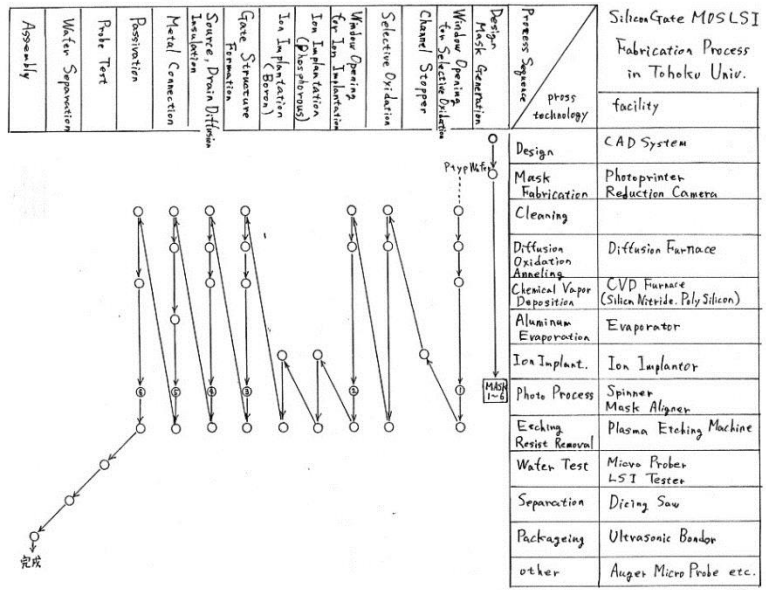 Silicon Gate MOS LSI
Fabrication Process
in Tohoku Univ.
facility
Process Sequence
pross
technology
Design
Mask Generation
Window Opening
for Selective Oxidation
Channel Stopper
Selective Oxidation
Window Opening
for Ion Implantation
Ion Implantation
(Phosphorous)
Ion Implantation
(Boron)
Gate Structure
Formation
Source, Drain Diffusion
Insulation
Metal Connection
Passivation
Probe Test
Wafer Separation
Assembly
Design
CAD System
Mask
Fabrication
Photoprinter
Reduction Camera
Cleaning
Diffusion
Oxidation
Anneling
Diffusion Furnace
Chemical Vapor
Deposition
CVD Furnace
(Silicn Nitride. Poly Silicon)
Aluminum
Evaporation
Evaporator
Ion Implant.
Ion Implantor
Photo Process
Spinner
Mask Aligner
Etching
Resist Removal
Plasma Etching Machine
Wafer Test
Micro Prober
LSI Tester
Separation
Dicing Saw
Packageing
Ultrasonic Bondor
other
Auger Micro Probe etc.
P typ Wafer
MASK
1~6
1
2
3
4
5
6
完成